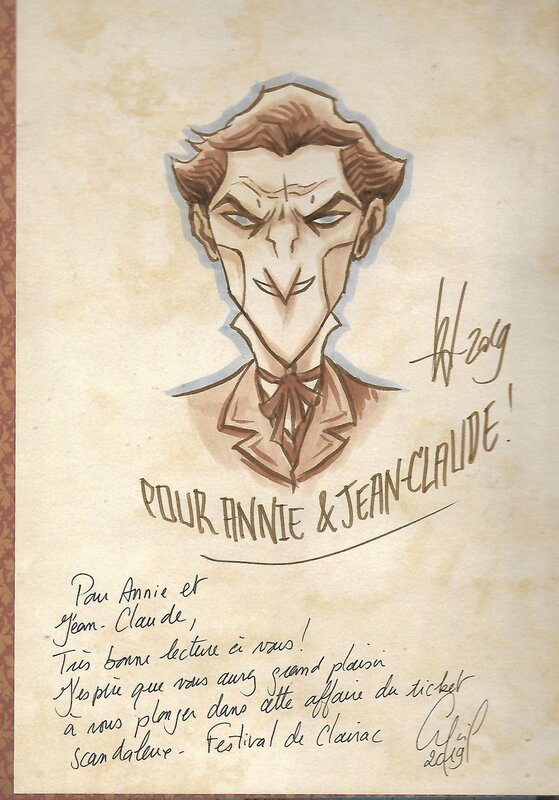 2019
POUR ANNIE & JEAN-CLAUDE !
Pour Annie et
Jean-Claude,
Très bonne lecture à vous !
J'espère que vous aurez grand plaisir
à vous plonger dans cette affaire du ticket
scandaleux. Festival de Clairac
2019